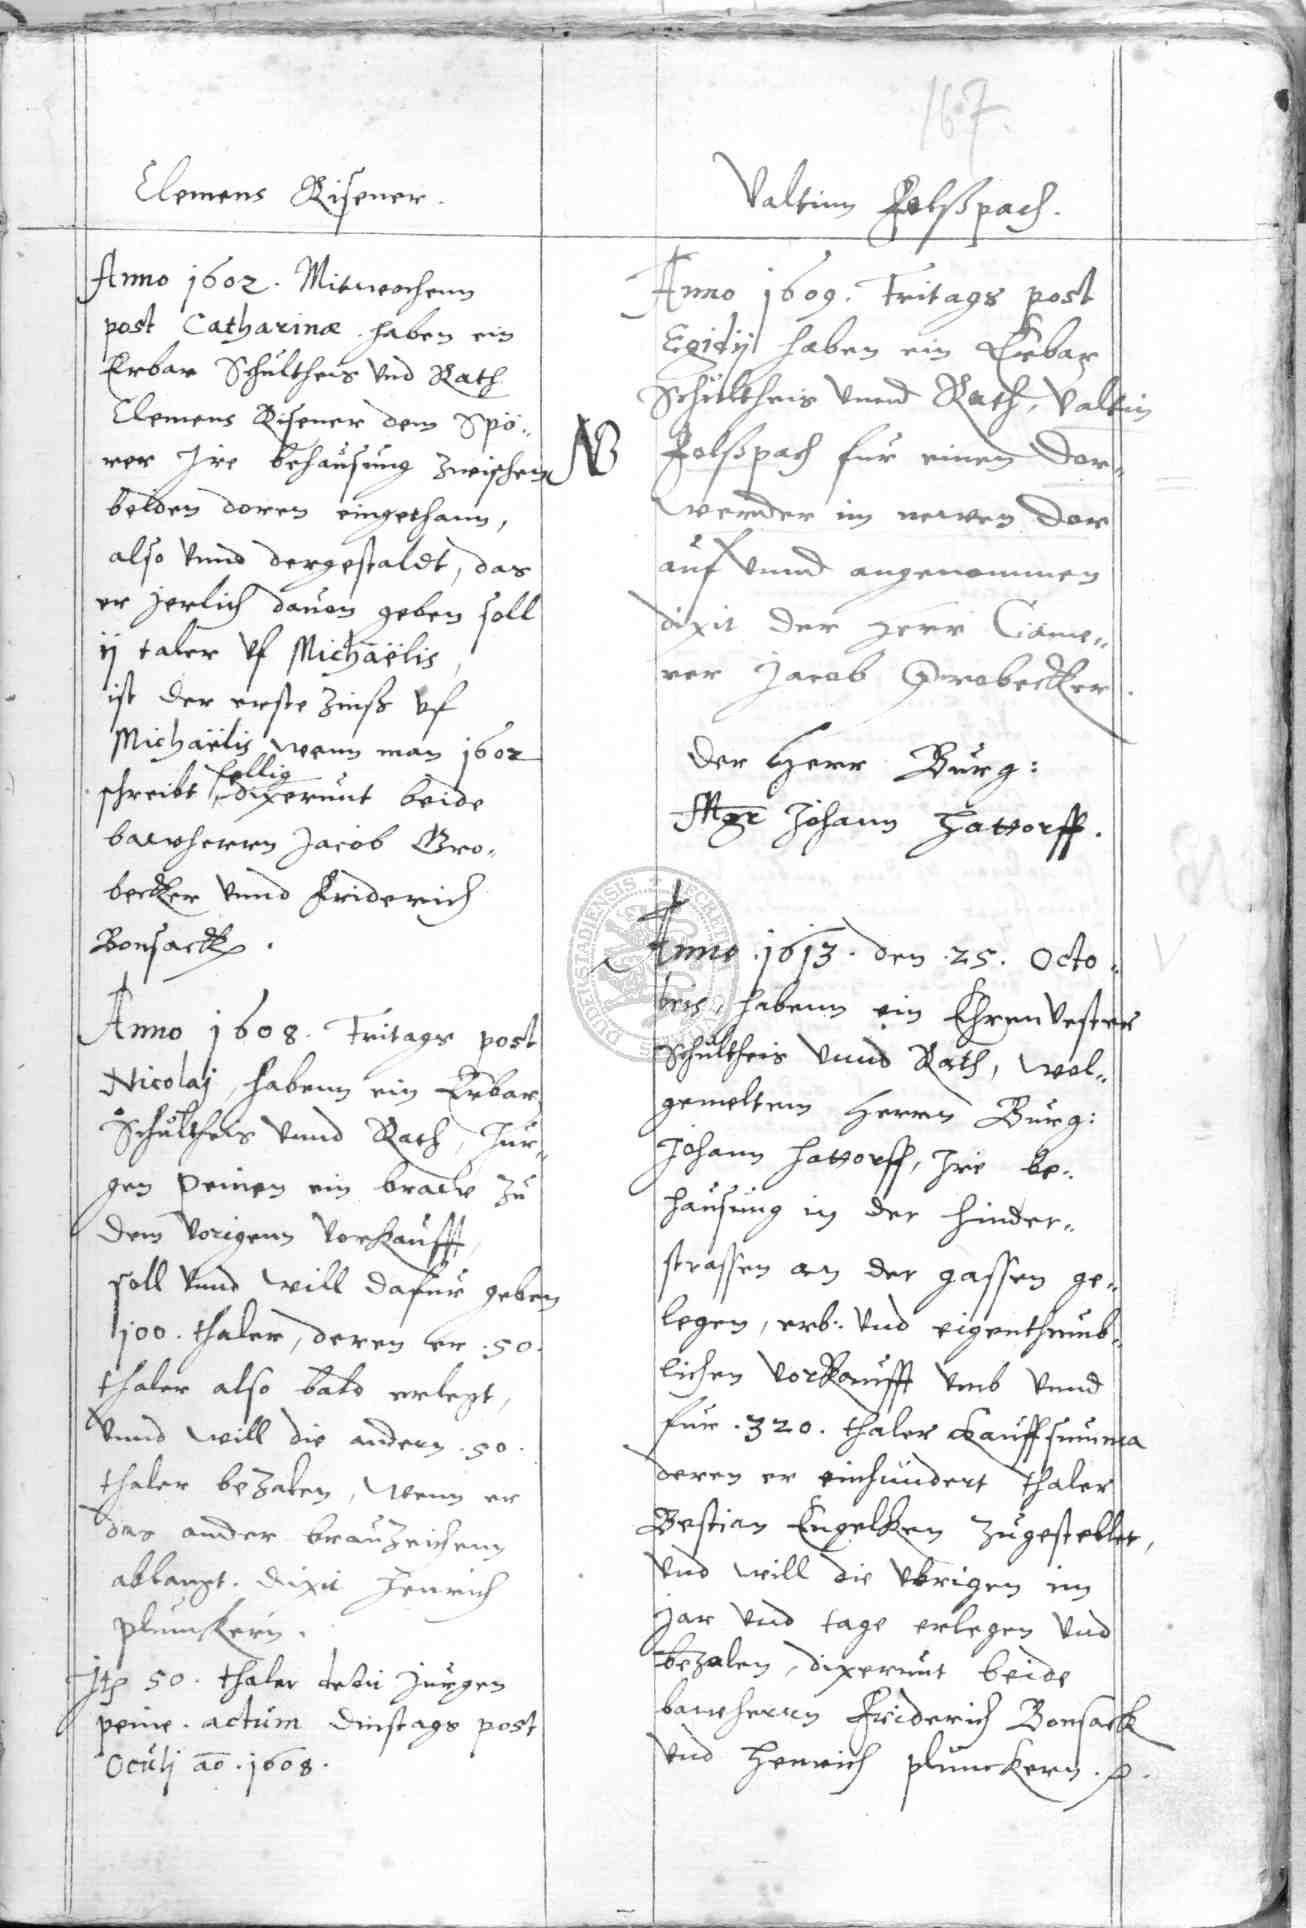 167.
Clemens Risener.
Anno 1602. Mitwochenn
post Catharinæ haben ein
Erbar Schultheis und Rath
Clemens Risener dem Spö„
rer Jre behausung zwischen
beiden doren eingethann,
also unnd dergestaldt, das
er jerlich davon geben soll
ij taler uf Michaëlis,
ist der erste Zinß uf
Michaëlis wenn man 1602
schreibt fellig dixerunt beide
bawherrn Jacob Gro„
becker unnd Friderich
Bonsack.
Anno 1608. Fritags post
Nicolaj, habenn ein Erbar
Schultheis unnd Rath, Jur„
gen Peinen ein braw zu
dem vorigenn vorkaufft,
soll unnd will dafur geben
100. thaler, deren er .50.
thaler also bald erlegt,
unnd will die andern .50.
thaler bezalen, wenn er
das ander brauzeichenn
ablangt. dixit Henrich
plunckern.
Jt 50. thaler dedit Jurgen
peine. actum Dinstags post
Oculj ao. 1608.
Valtinn Folßpach.
Anno 1609. Fritags post
Egidij haben ein Erbar
Schultheis unnd Rath, Valtin
NB Folßpach fur einen Dor„
werder im newen Dor
auf unnd angenommen
dixit der Herr Came„
rer Jacob Grobecker.
Der Herr Burg:
Mgr Johann Hattorff.
Anno .1613. den .25. Octo„
bris, habenn ein Ehrenvester
Schultheis unnd Rath, wol„
gemeltem Herrn Burg:
Johann Hattorff, Jre be„
hausung in der hinder„
strassen an der gassen ge„
legen, erb: und eigenthumb„
lichen vorkaufft umb unnd
fur .320. thaler kauffsumma
deren er einhundert thaler
Bestian Engelken zugestellet,
und will die ubrigen im
jar und tage erlegen und
bezalen, dixerunt beide
bawherrn Friderich Bonsack
und Henrich plunckern.